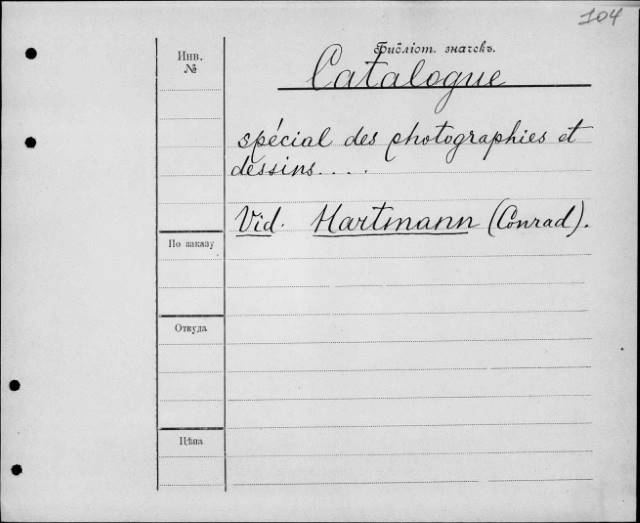 104
Инв.
№
Библіот. значекъ.
Catalogue
spécial des photographies et
dessins....
Vid. Hartmann (Conrad).
По заказу
Откуда
Цѣна